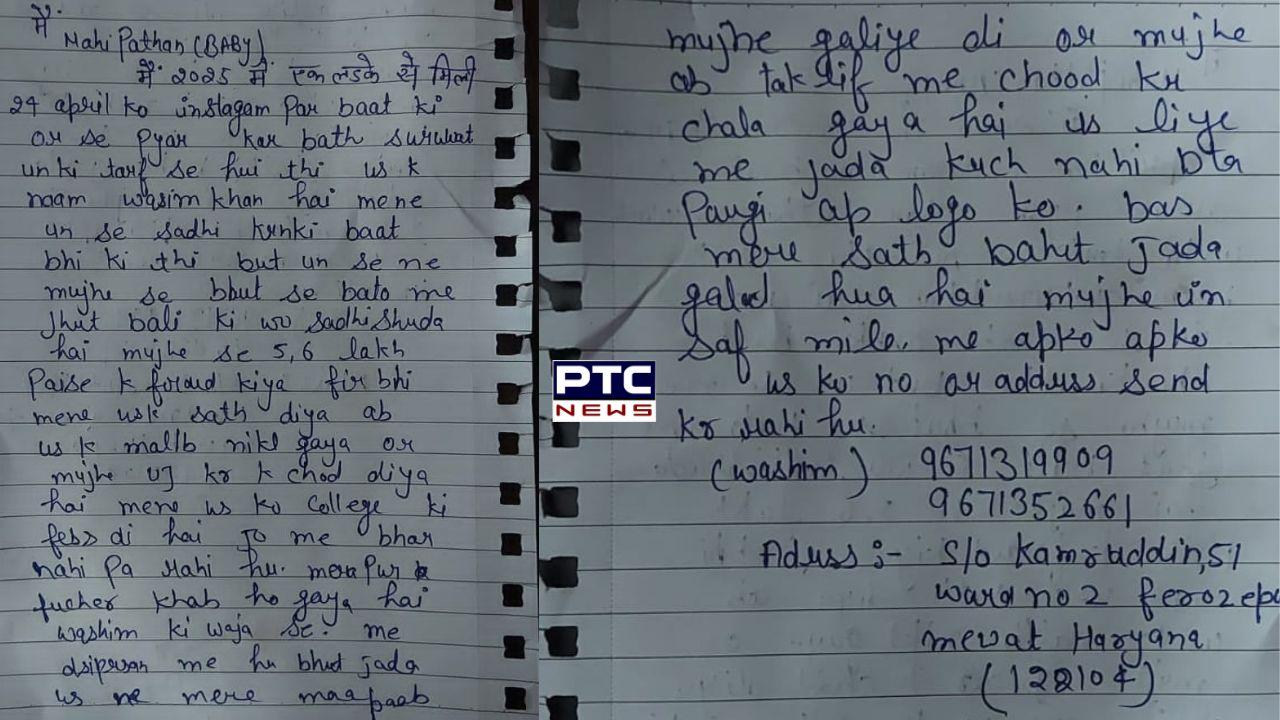 मैं
Mahi Pathan (BABY)
मैं 2025 में एक लडके से मिली
24 april ko instagam par baat ki
or se pyar kar bath suruwat
un ki tarf se hui thi us k
naam wasim khan hai mene
un se sadhi krnki baat
bhi ki thi but un se ne
mujhe se bhut se bato me
Jhut bali ki wo sadhishuda
hai mujhe se 5,6 lakh
Paise k foraud kiya fir bhi
mene usk sath diya ab
us k matlb nikl gaya or
mujhe uj kr k chod diya
hai mene us ko College ki
febs di hai jo me bhar
nahi pa rahi hu. mera pur k
fucher khab ho gaya hai
washim ki waja se. me
dsiprsan me hu bhut jada
us ne mere maa paab
mujhe galiye di or mujhe
ab taklif me chood kr
chala gaya hai is liye
me jada kuch nahi bta
Paugi ap logo ko. bas
mere sath bahut jada
galad hua hai mujhe in
saf mile. me apko apko
us ko no or address send
kr rahi hu.
(washim) 9671319909
9671352661
Adress :- S/o Kamruddin, 51
ward no 2 ferozepu
mewat Haryana
(122104)
PTC
NEWS